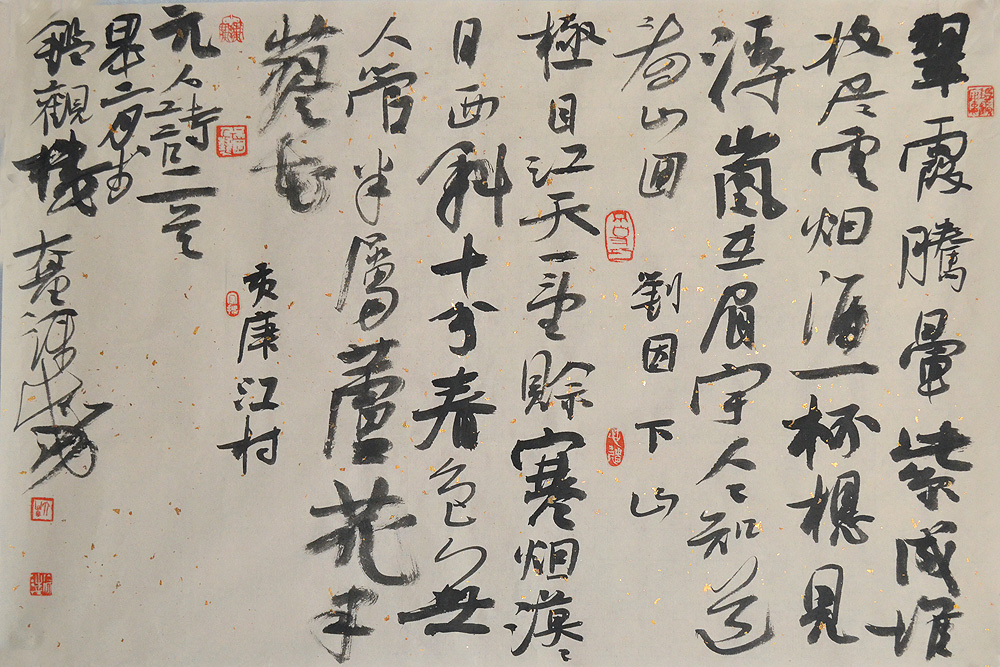 翠霞騰暈紫成堆
收尽雲烟酒一杯想見
浮嵐在眉宇人〻知道
看山回
劉因 下山
極目江天一望賒寒烟漠〻
日西斜十分春色無
人管半屬蘆花半
蓼花
黄庚 江村
元人詩二首